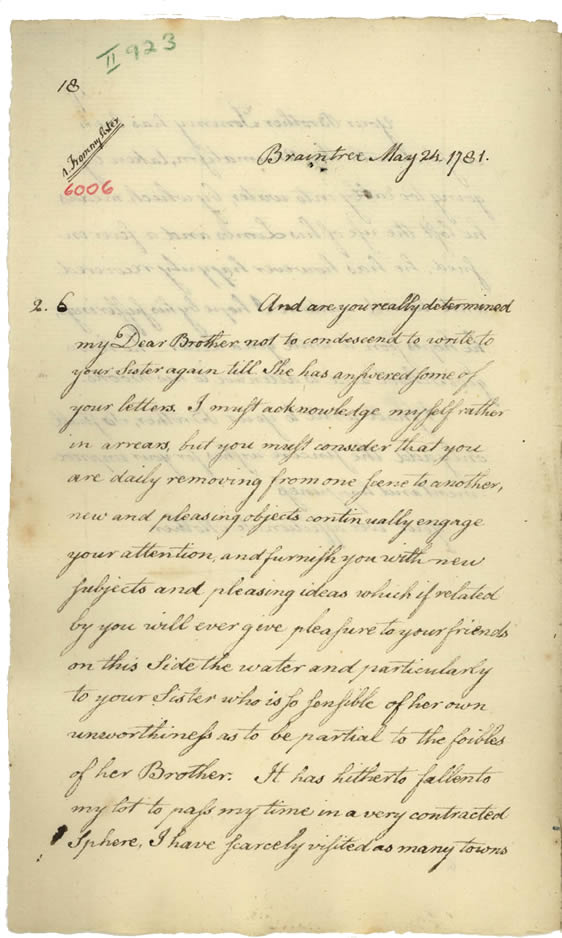 II 923
18
1 From my Sister
6006
Braintree May 24 1781.
2. 6
And are you really determined
my Dear Brother not to condescend to write to
your Sister again till She has answered some of
your letters. I must acknowledge myself rather
in arrears, but you must consider that you
are daily removing from one scene to another,
new and pleasing objects continually engage
your attention, and furnish you with new
subjects and pleasing ideas which if related
by you will ever give pleasure to your friends
on this Side the water and particularly
to your Sister who is so sensible of her own
unworthiness as to be partial to the foibles
of her Brother. It has hitherto fallen to
my lot to pass my time in a very contracted
Sphere, I have scarcely visited as many towns